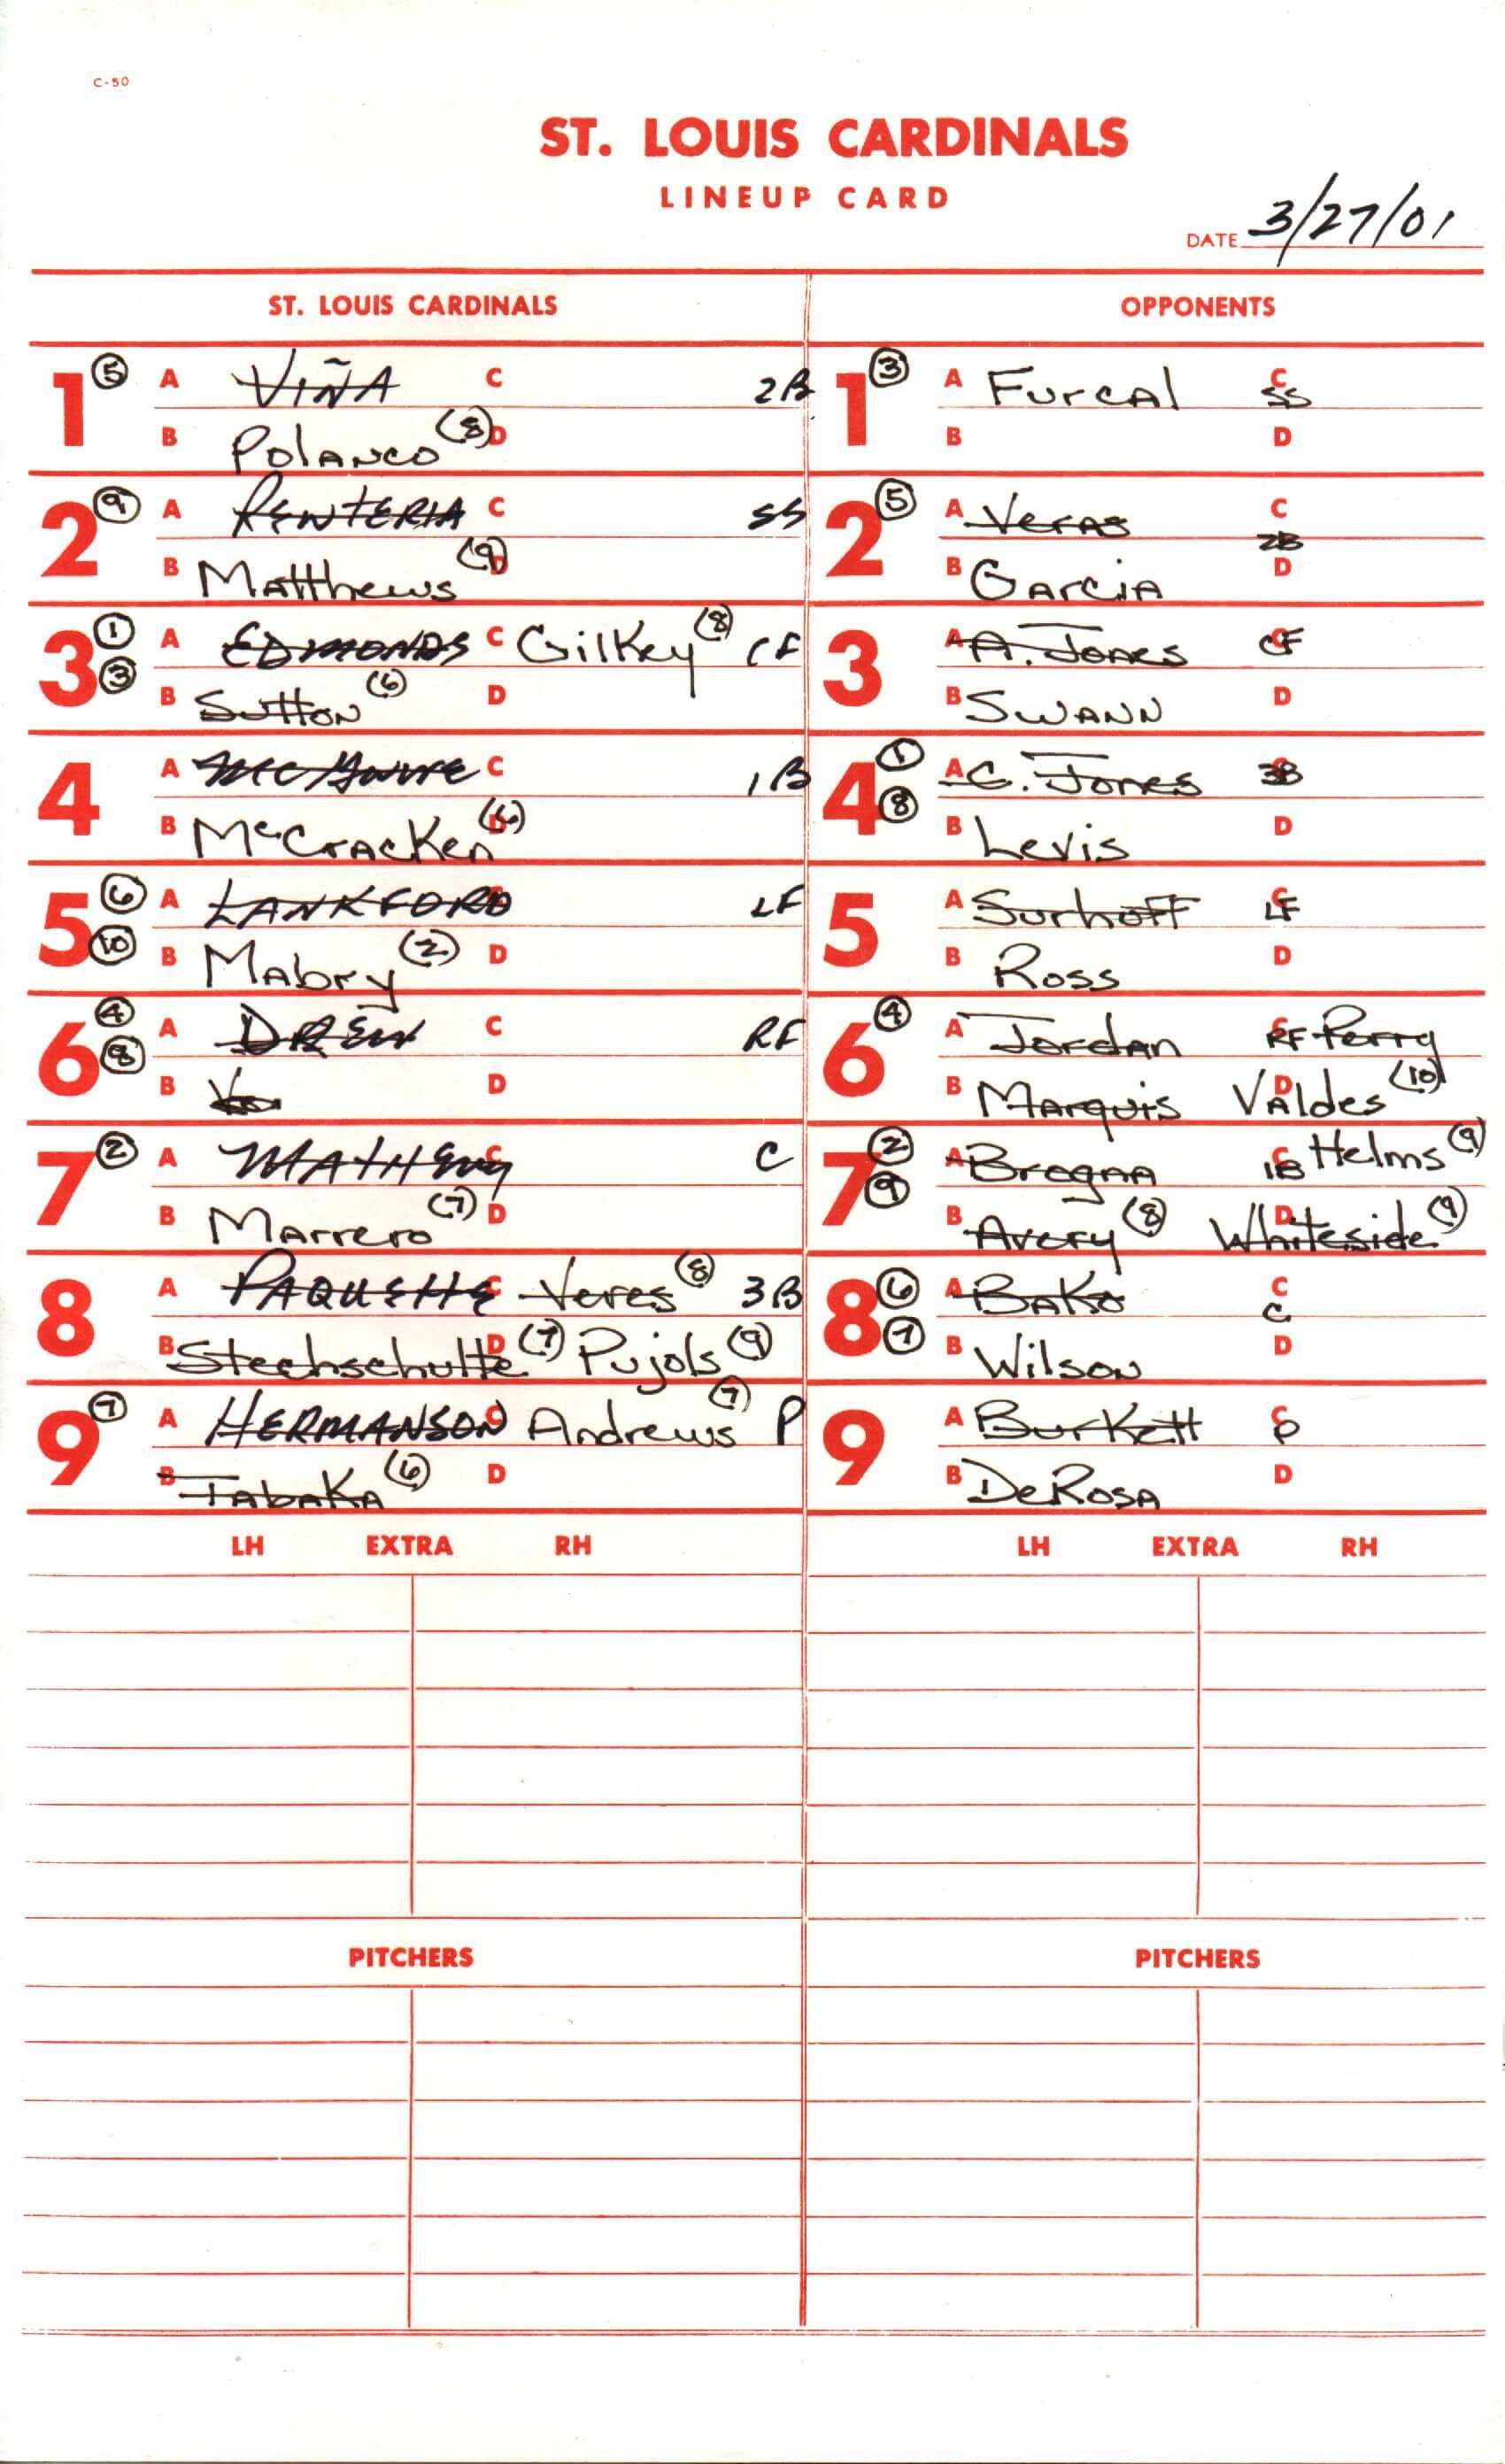 C-50
ST. LOUIS CARDINALS
LINEUP CARD
DATE 3/27/01
ST. LOUIS CARDINALS
1 (5) A VIÑA C 2B
B Polanco (8) D
2 (9) A RENTERIA C SS
B Matthews (9) D
3 (1) A EDMONDS C Gilkey (8) CF
(3) B Sutton (6) D
4 A McGwire C 1B
B McCracken (6) D
5 (6) A LANKFORD C LF
(10) B Mabry (2) D
6 (4) A DREW C RF
(8) B D
7 (2) A MATHENY C C
B Marrero (7) D
8 A PAQUETTE C Veres (8) 3B
B Stechschulte (7) D Pujols (9)
9 (7) A HERMANSON C Andrews (7) P
B Tabaka (6) D
LH EXTRA RH
PITCHERS
OPPONENTS
1 (3) A Furcal C SS
B D
2 (5) A Veras C 2B
B Garcia D
3 A A. Jones C CF
B Swann D
4 (1) A C. Jones C 3B
(8) B Levis D
5 A Surhoff C LF
B Ross D
6 (4) A Jordan C RF Perry
B Marquis D Valdes (10)
7 (2) A Brogna C 1B Helms (9)
(9) B Avery (8) D Whiteside (9)
8 (6) A Bako C C
(7) B Wilson D
9 A Burkett C P
B DeRosa D
LH EXTRA RH
PITCHERS